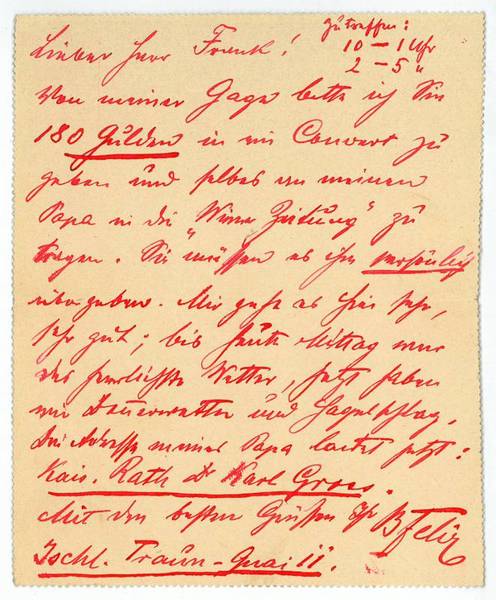 Zu treffen:
10 – 1 Uhr
2 – 5 "
Lieber Herr Frank!
Von meiner Gage bitte ich Sie
180 Gulden in ein Couvert zu
geben und selbes an meinen
Papa in die "Wiener Zeitung" zu
tragen. Sie müssen es ihm persönlich
übergeben. Mir geht es hier sehr,
sehr gut; bis heute Mittag war
das herrlichste Wetter, jetzt haben
wir Donnerwetter und Hagelschlag.
Die Adresse meines Papa lautet jetzt:
Kais. Rath Dr Karl Gross.
Mit den besten Grüßen Ihr BFelix
Ischl. Traun-Quai 11.